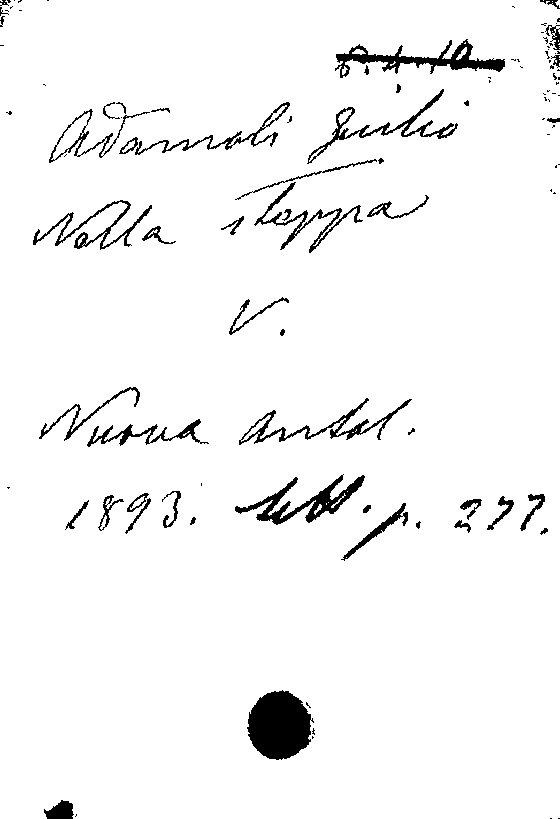 8.4.10
Adamoli Giulio
Nella steppa
V.
Nuova Antol.
1893. Sett. p. 277.